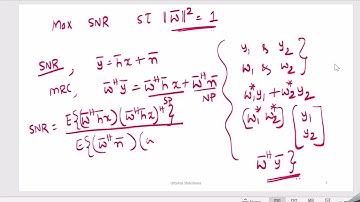 Max SNR ST ‖w̄‖² = 1
SNR, ȳ = h̄x + n̄
MRC, w̄ᴴȳ = w̄ᴴh̄x + w̄ᴴn̄
SP NP
SNR = E{(w̄ᴴh̄x)(w̄ᴴh̄x)ᴴ}
E{(w̄ᴴn̄)(
y₁ & y₂
w₁ & w₂
w₁*y₁ + w₂*y₂
(w₁* w₂*) [y₁
y₂]
w̄ᴴȳ}
1